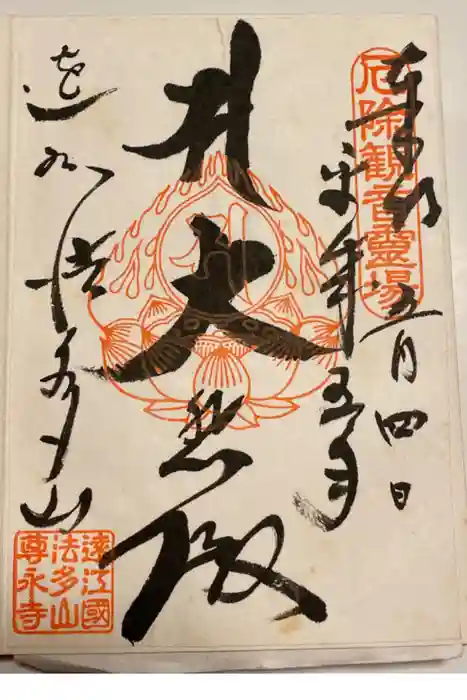 厄除觀音靈場
奉拝
平成五年
五月四日
大悲殿
遠州法多山
遠江國
法多山
尊永寺